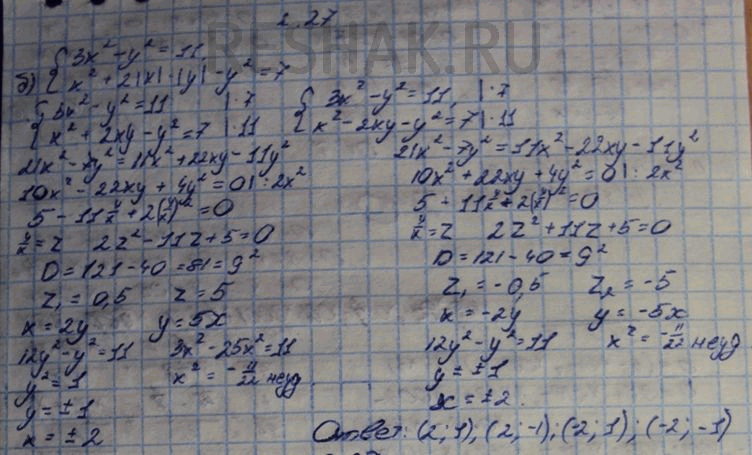 2.27
RESHAK.RU
б) { 3x² - y² = 11,
x² + 2|x|·|y| - y² = 7
{ 3x² - y² = 11 |·7
x² + 2xy - y² = 7 |·11
21x² - 7y² = 11x² + 22xy - 11y²
10x² - 22xy + 4y² = 0 |: 2x²
5 - 11 y/x + 2(y/x)² = 0
y/x = z 2z² - 11z + 5 = 0
D = 121 - 40 = 81 = 9²
z₁ = 0,5 z = 5
x = 2y y = 5x
12y² - y² = 11 3x² - 25x² = 11
y² = 1 x² = -11/22 неуд
y = ±1
x = ±2
{ 3x² - y² = 11, |·7
x² - 2xy - y² = 7 |·11
21x² - 7y² = 11x² - 22xy - 11y²
10x² + 22xy + 4y² = 0 |: 2x²
5 + 11 y/x + 2(y/x)² = 0
y/x = z 2z² + 11z + 5 = 0
D = 121 - 40 = 9²
z₁ = -0,5 z₂ = -5
x = -2y y = -5x
12y² - y² = 11 x² = -11/22 неуд
y = ±1
x = ±2.
Ответ: (2; 1); (2; -1); (-2; 1); (-2; -1)